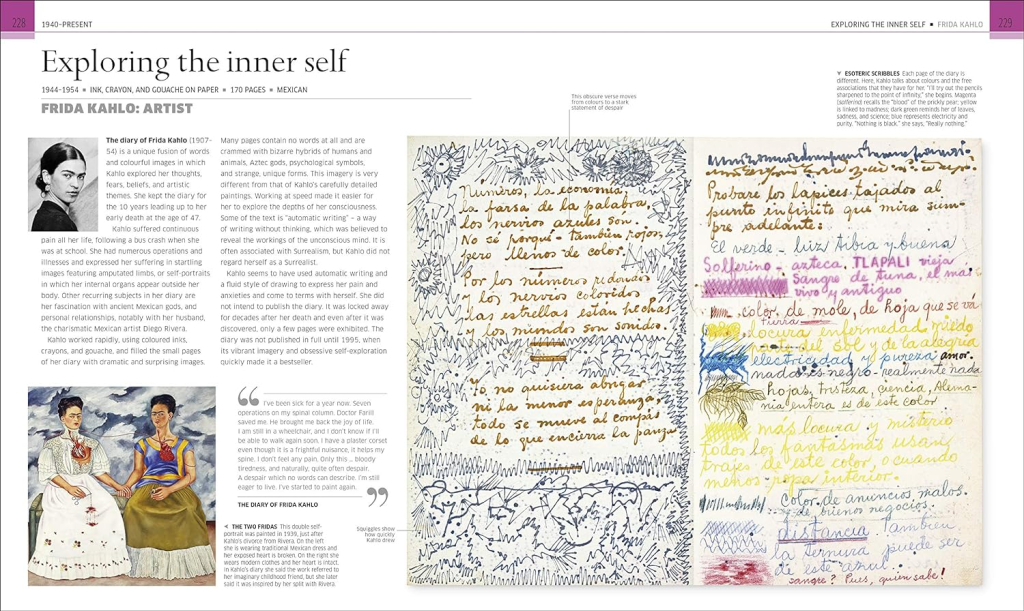 228
1940–PRESENT
EXPLORING THE INNER SELF ▪ FRIDA KAHLO
229
Exploring the inner self
1944–1954 ▪ INK, CRAYON, AND GOUACHE ON PAPER ▪ 170 PAGES ▪ MEXICAN
FRIDA KAHLO: ARTIST
The diary of Frida Kahlo (1907–
54) is a unique fusion of words
and colourful images in which
Kahlo explored her thoughts,
fears, beliefs, and artistic
themes. She kept the diary for
the 10 years leading up to her
early death at the age of 47.
Kahlo suffered continuous
pain all her life, following a bus crash when she
was at school. She had numerous operations and
illnesses and expressed her suffering in startling
images featuring amputated limbs, or self-portraits
in which her internal organs appear outside her
body. Other recurring subjects in her diary are
her fascination with ancient Mexican gods, and
personal relationships, notably with her husband,
the charismatic Mexican artist Diego Rivera.
Kahlo worked rapidly, using coloured inks,
crayons, and gouache, and filled the small pages
of her diary with dramatic and surprising images.
Many pages contain no words at all and are
crammed with bizarre hybrids of humans and
animals, Aztec gods, psychological symbols,
and strange, unique forms. This imagery is very
different from that of Kahlo's carefully detailed
paintings. Working at speed made it easier for
her to explore the depths of her consciousness.
Some of the text is "automatic writing" – a way
of writing without thinking, which was believed to
reveal the workings of the unconscious mind. It is
often associated with Surrealism, but Kahlo did not
regard herself as a Surrealist.
Kahlo seems to have used automatic writing and
a fluid style of drawing to express her pain and
anxieties and come to terms with herself. She did
not intend to publish the diary. It was locked away
for decades after her death and even after it was
discovered, only a few pages were exhibited. The
diary was not published in full until 1995, when
its vibrant imagery and obsessive self-exploration
quickly made it a bestseller.
“
I've been sick for a year now. Seven
operations on my spinal column. Doctor Farill
saved me. He brought me back the joy of life.
I am still in a wheelchair, and I don't know if I'll
be able to walk again soon. I have a plaster corset
even though it is a frightful nuisance, it helps my
spine. I don't feel any pain. Only this ... bloody
tiredness, and naturally, quite often despair.
A despair which no words can describe. I'm still
eager to live. I've started to paint again.
”
THE DIARY OF FRIDA KAHLO
◄ THE TWO FRIDAS This double self-
portrait was painted in 1939, just after
Kahlo's divorce from Rivera. On the left
she is wearing traditional Mexican dress and
her exposed heart is broken. On the right she
wears modern clothes and her heart is intact.
In Kahlo's diary she said the work referred to
her imaginary childhood friend, but she later
said it was inspired by her split with Rivera.
This obscure verse moves
from colours to a stark
statement of despair
Squiggles show
how quickly
Kahlo drew
▼ ESOTERIC SCRIBBLES Each page of the diary is
different. Here, Kahlo talks about colours and the free
associations that they have for her. "I'll try out the pencils
sharpened to the point of infinity," she begins. Magenta
(solferino) recalls the "blood" of the prickly pear; yellow
is linked to madness; dark green reminds her of leaves,
sadness, and science; blue represents electricity and
purity. "Nothing is black," she says, "Really nothing."
Números, la economía,
la farsa de la palabra,
los nervios azules son.
No sé porqué – también rojos,
pero llenos de color.
Por los números redondos
y los nervios coloridos
las estrellas están hechas
y los mundos son sonidos.
Yo no quisiera abrigar
ni la menor esperanza,
todo se mueve al compás
de lo que encierra la panza
Probaré los lápices tajados al
punto infinito que mira siem-
pre adelante:
El verde – luz tibia y buena
Solferino – azteca. TLAPALI vieja
Sangre de tuna, el mas
vivo y antiguo
color de mole, de hoja que se va
tierra
locura enfermedad miedo
parte del sol y de la alegria
electricidad y pureza amor.
nada es negro – realmente nada
Hojas, tristeza, ciencia, Alema-
nia entera es de este color
mas locura y misterio
todos los fantasmas usan
trajes de este color, o cuando
menos ropa interior.
Color de anuncios malos.
y de buenos negocios.
distancia también
la ternura puede ser
de este azul
sangre? Pues, quien sabe!